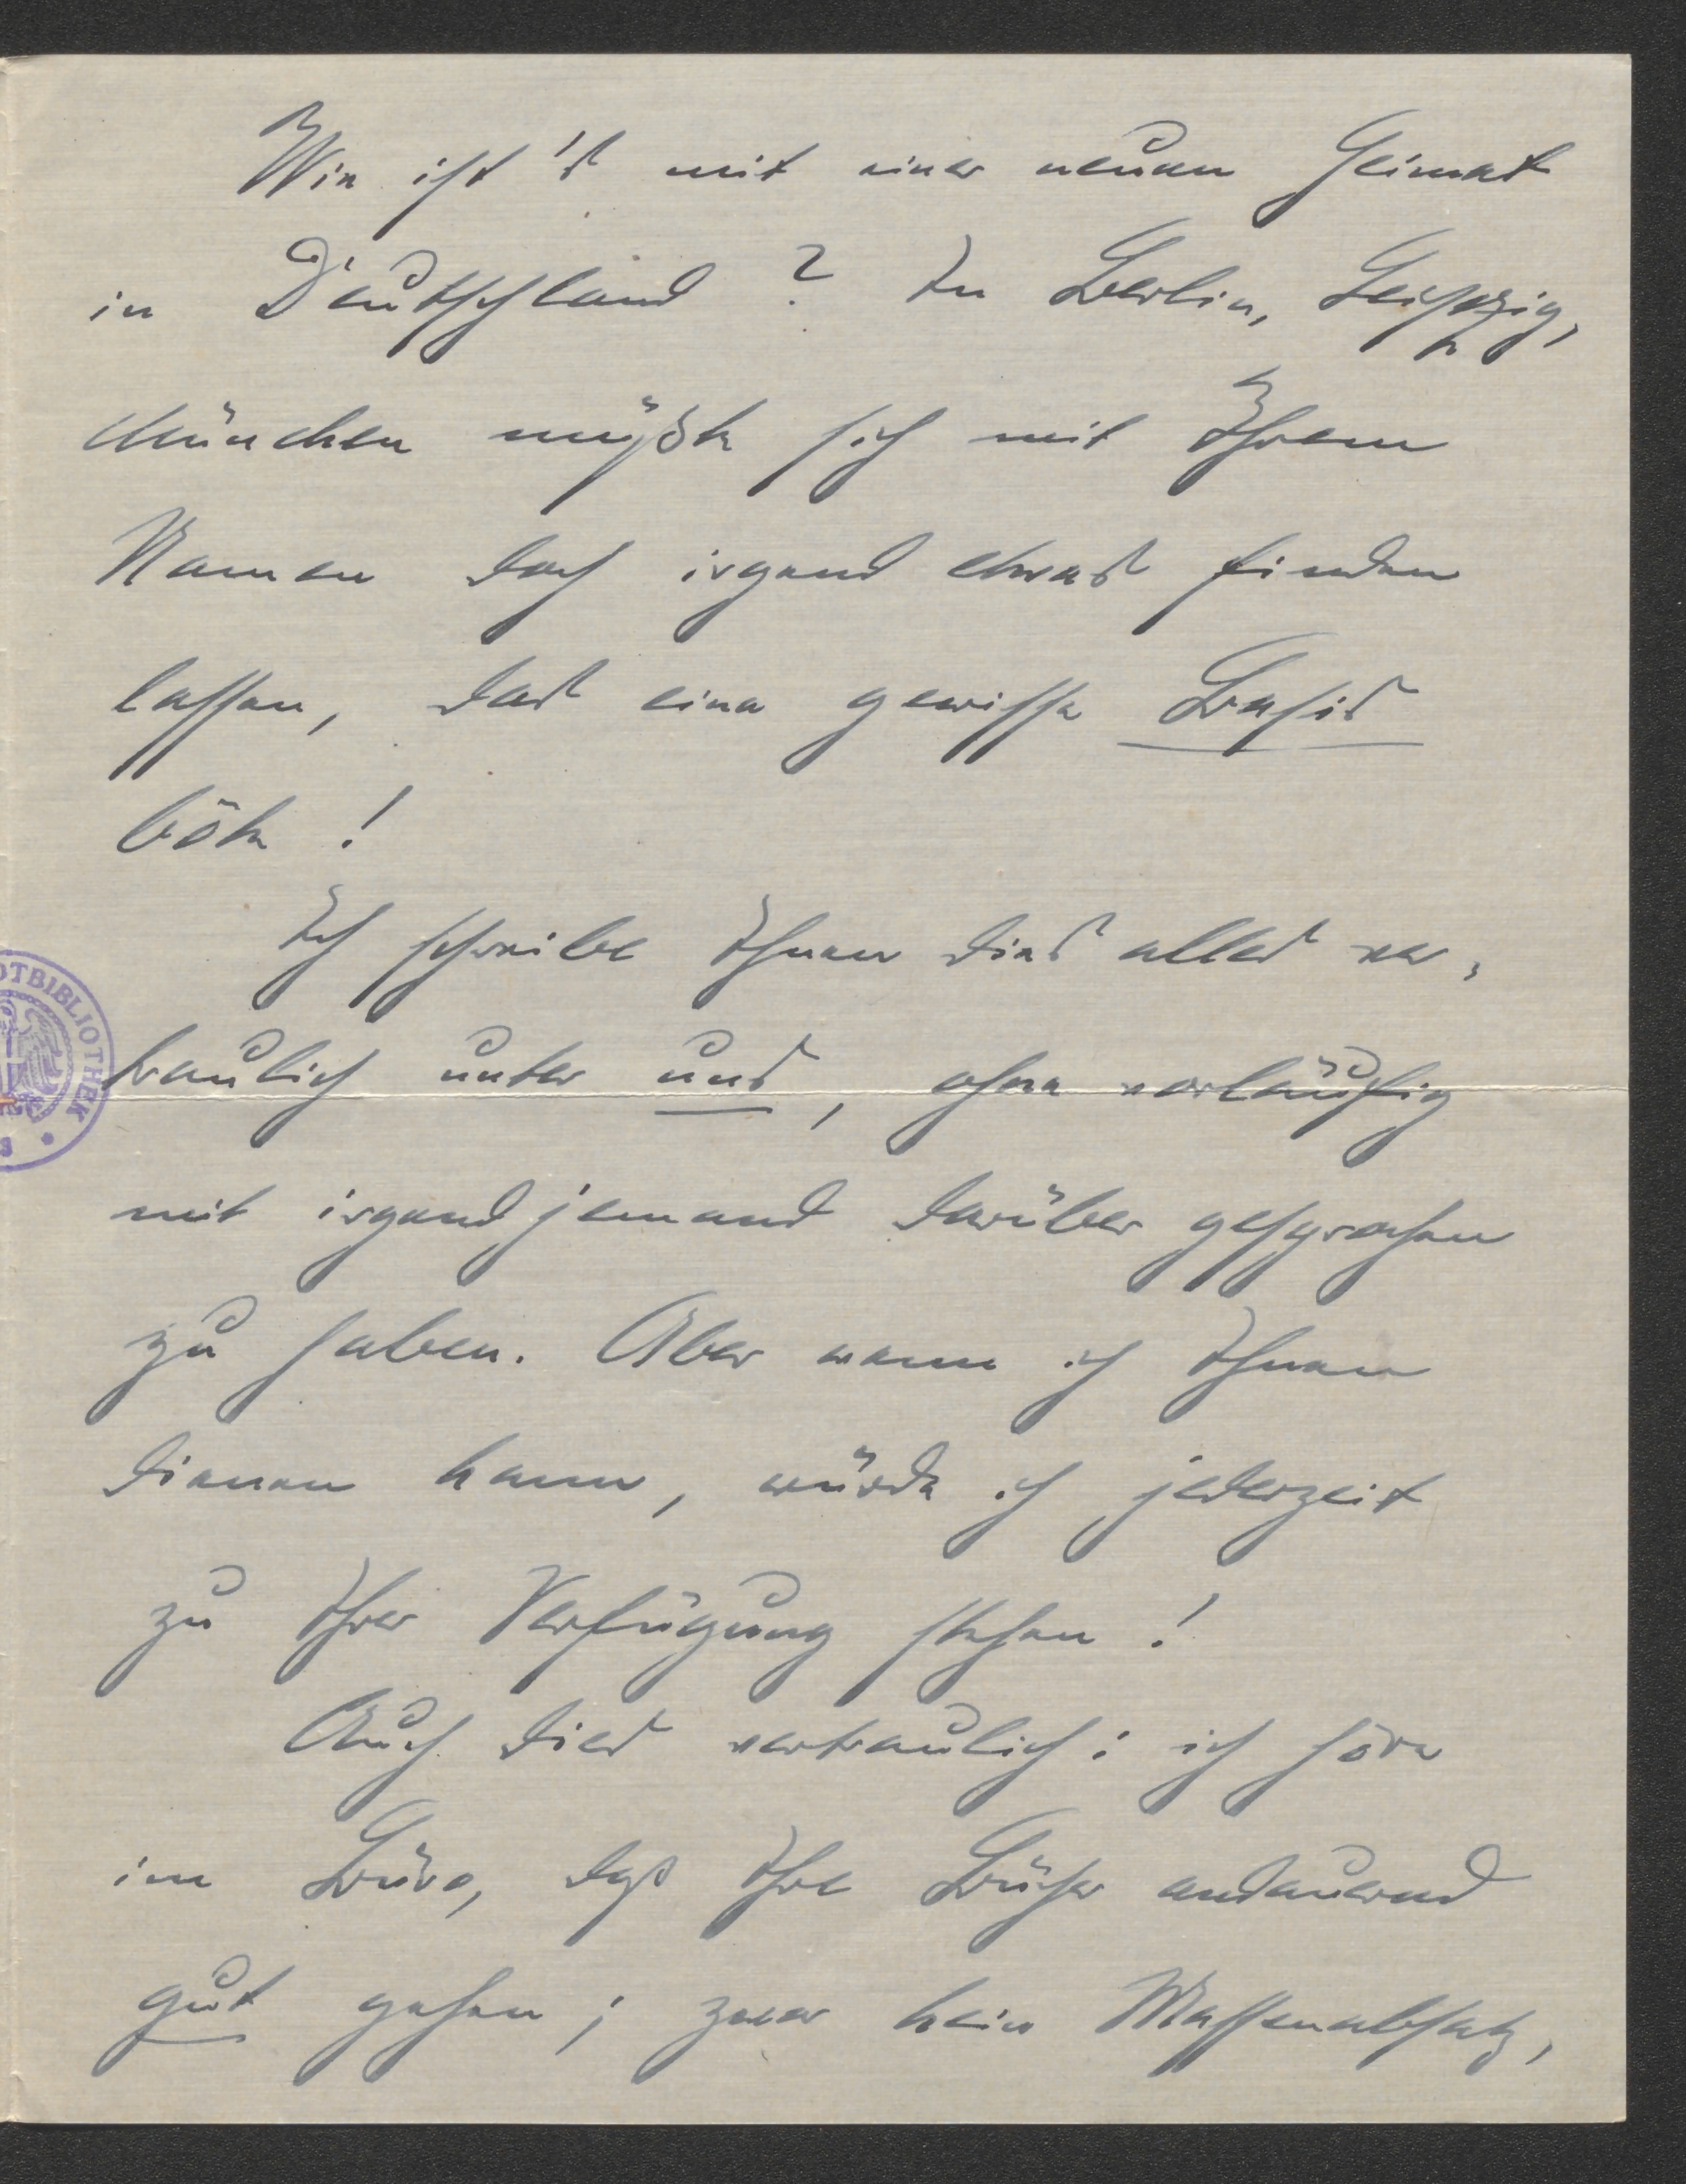 Wie ist's mit einer neuen Heimat
in Deutschland? In Berlin, Leipzig,
München müßte sich mit Ihrem
Namen doch irgend etwas finden
lassen, das eine gewisse Basis
böte!
Ich schreibe Ihnen dies alles ver-
traulich unter uns, ohne vorläufig
mit irgend jemand darüber gesprochen
zu haben. Aber wenn ich Ihnen
dienen kann, würde ich jederzeit
zu Ihrer Verfügung stehen!
Auch dies vertraulich: ich höre
im Büro, daß Ihre Bücher andauernd
gut gehen; zwar kein Massenabsatz,
OTBIBLIOTHEK